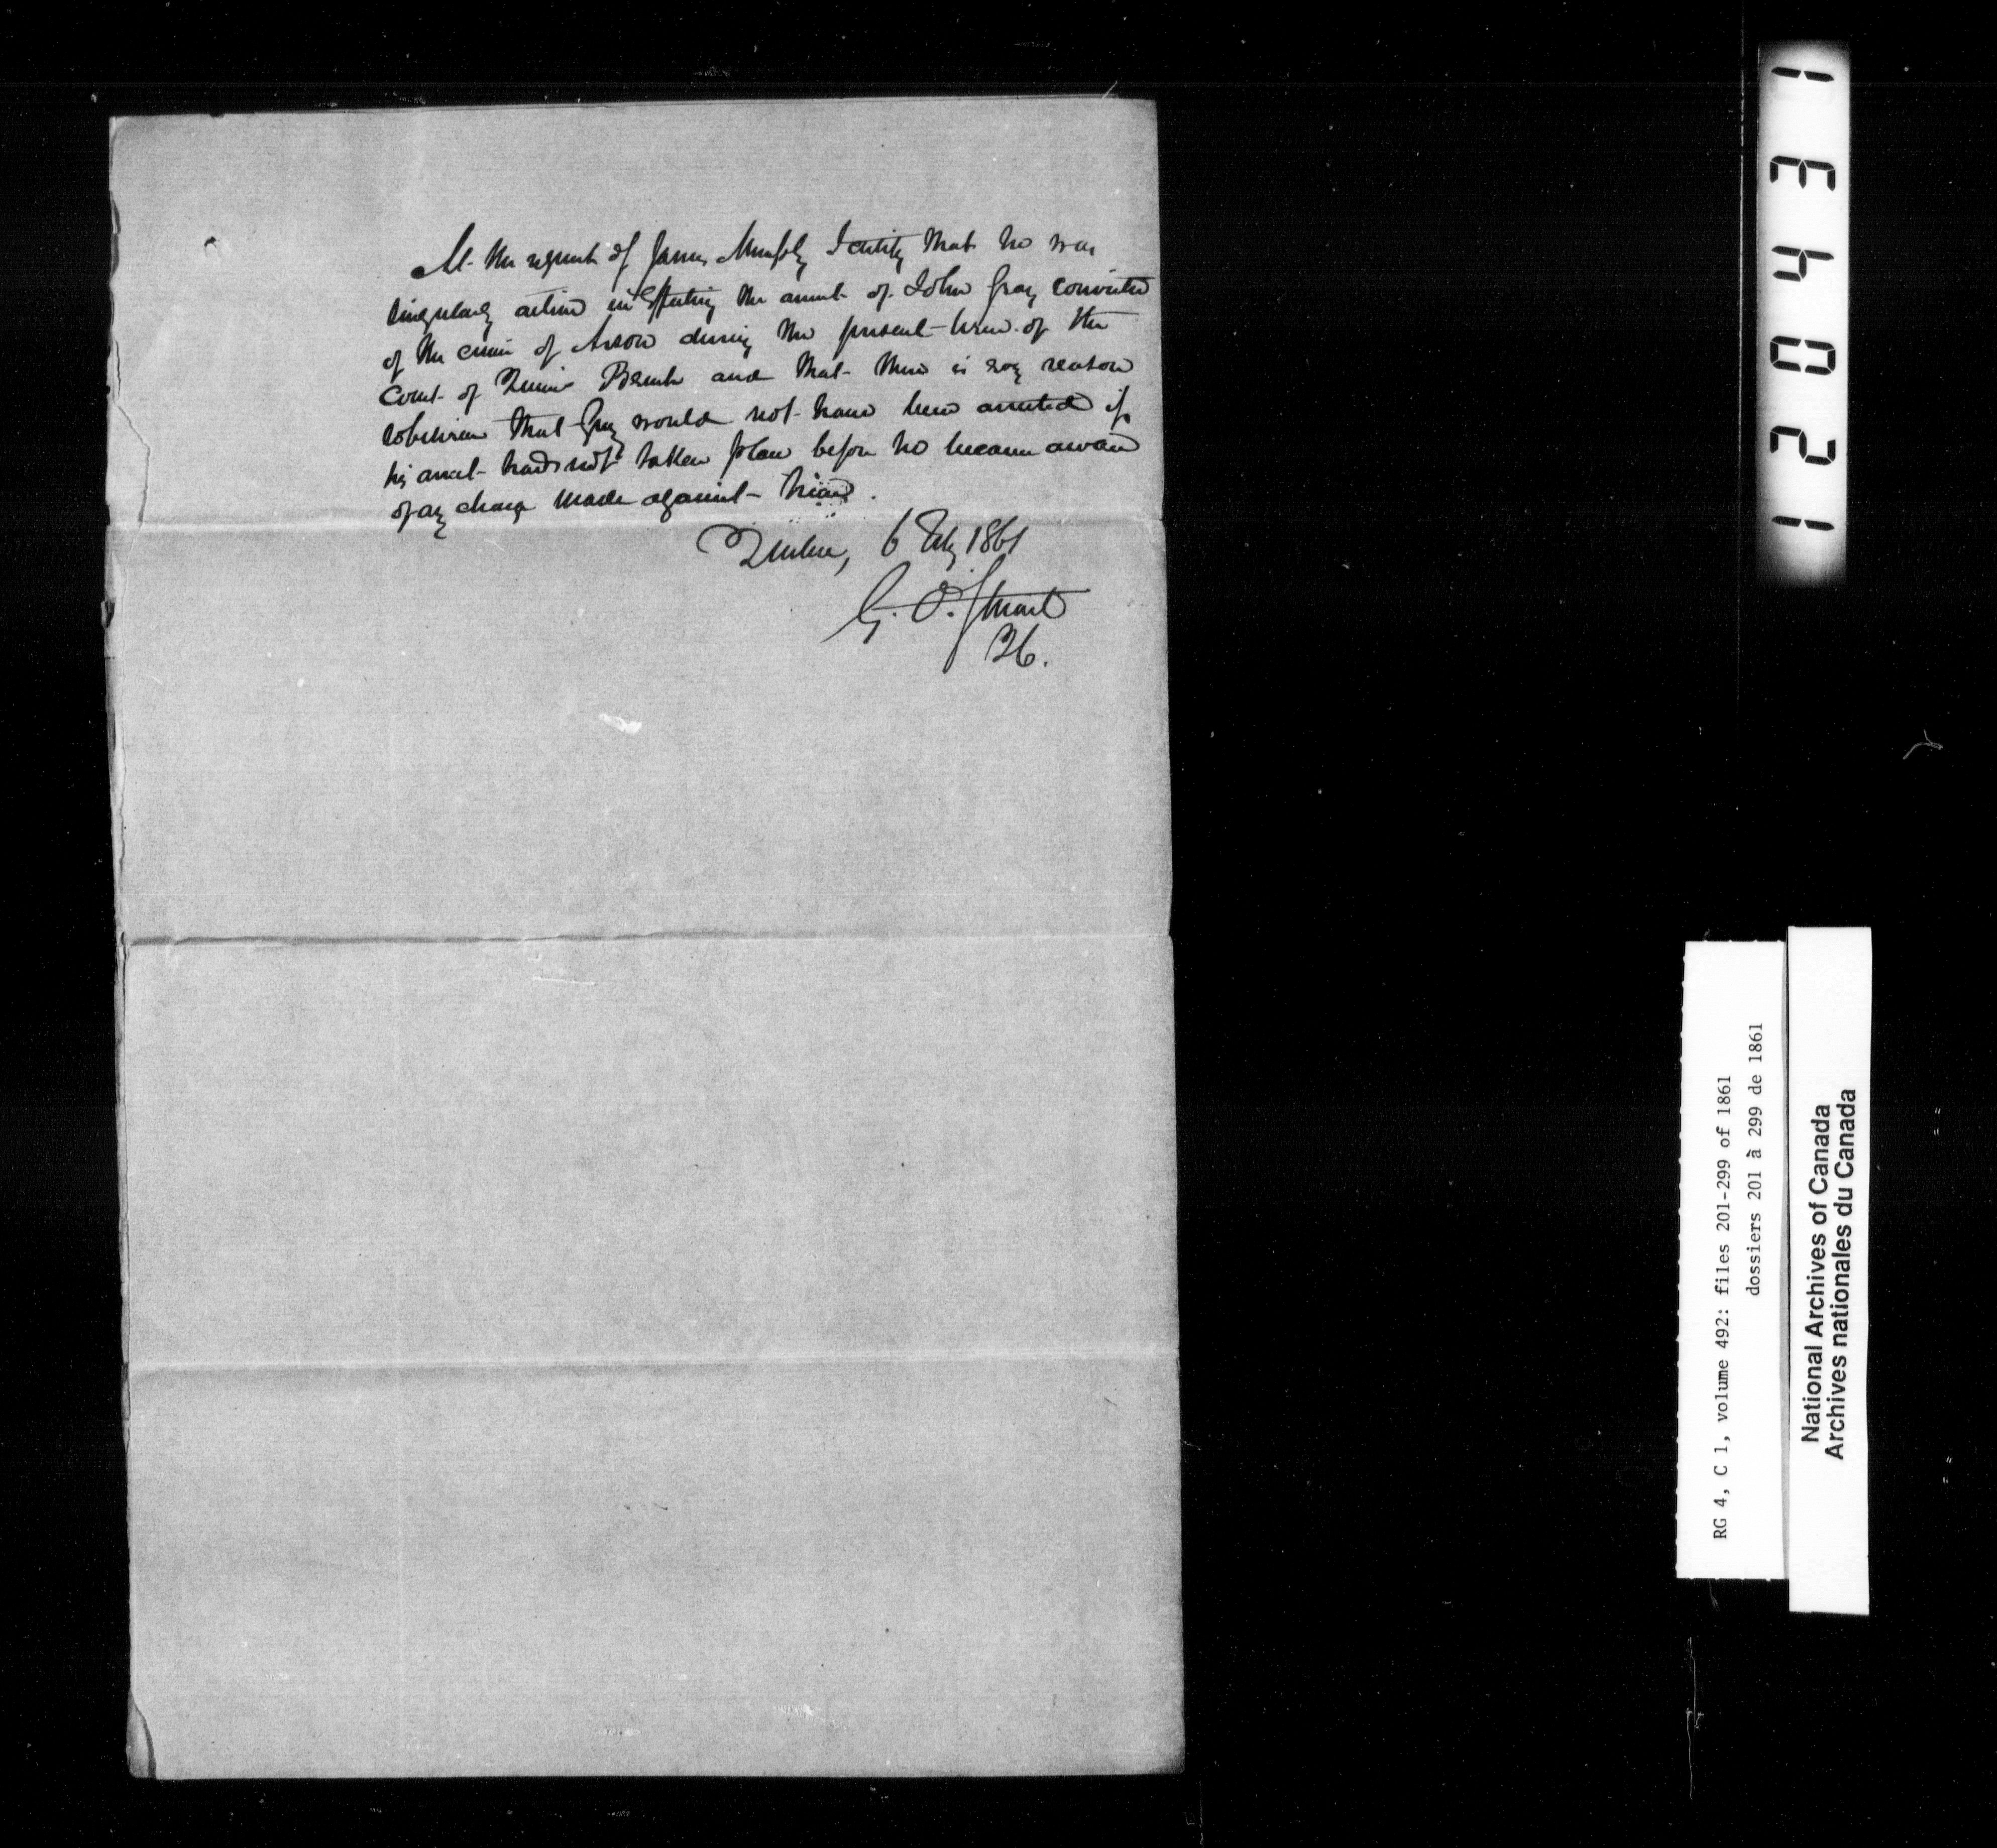 At the request of James Murphy I certify that he was
singularly active in effecting the arrest of John Gray convicted
of the crime of Arson during the present term of the
Court of Queens Bench and that there is every reason
to believe that Gray would not have been arrested if
his arrest had not taken place before he became aware
of any charge made against him.
Quebec, 6 Feby 1861
G. O. Stuart
120431
RG 4, C 1, volume 492: files 201-299 of 1861
dossiers 201 à 299 de 1861
National Archives of Canada
Archives nationales du Canada